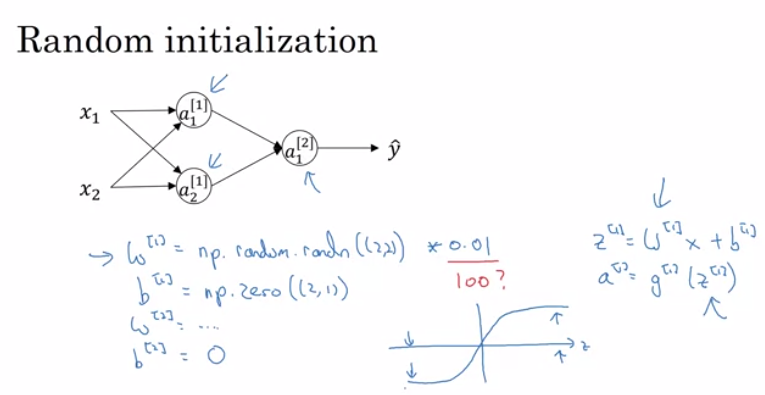 Random initialization
x₁
a₁^[1]
a₁^[2]
ŷ
x₂
a₂^[1]
→ W^[1] = np.random.randn((2,2)) * 0.01
100?
b^[1] = np.zero((2,1))
W^[2] = ...
b^[2] = 0
z^[1] = W^[1] x + b^[1]
a^[1] = g^[1](z^[1])
z